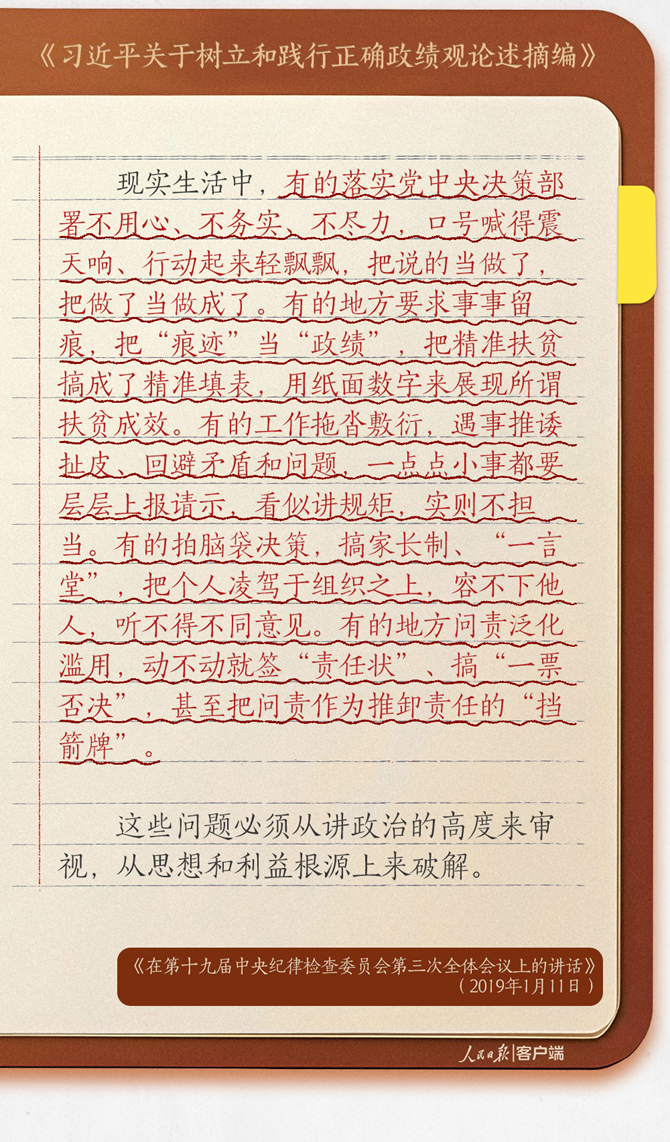 《习近平关于树立和践行正确政绩观论述摘编》
现实生活中，有的落实党中央决策部
署不用心、不务实、不尽力，口号喊得震
天响、行动起来轻飘飘，把说的当做了，
把做了当做成了。有的地方要求事事留
痕，把“痕迹”当“政绩”，把精准扶贫
搞成了精准填表，用纸面数字来展现所谓
扶贫成效。有的工作拖沓敷衍，遇事推诿
扯皮、回避矛盾和问题，一点点小事都要
层层上报请示，看似讲规矩，实则不担
当。有的拍脑袋决策，搞家长制、“一言
堂”，把个人凌驾于组织之上，容不下他
人，听不得不同意见。有的地方问责泛化
滥用，动不动就签“责任状”、搞“一票
否决”，甚至把问责作为推卸责任的“挡
箭牌”。
这些问题必须从讲政治的高度来审
视，从思想和利益根源上来破解。
《在第十九届中央纪律检查委员会第三次全体会议上的讲话》
（2019年1月11日）
人民日报|客户端